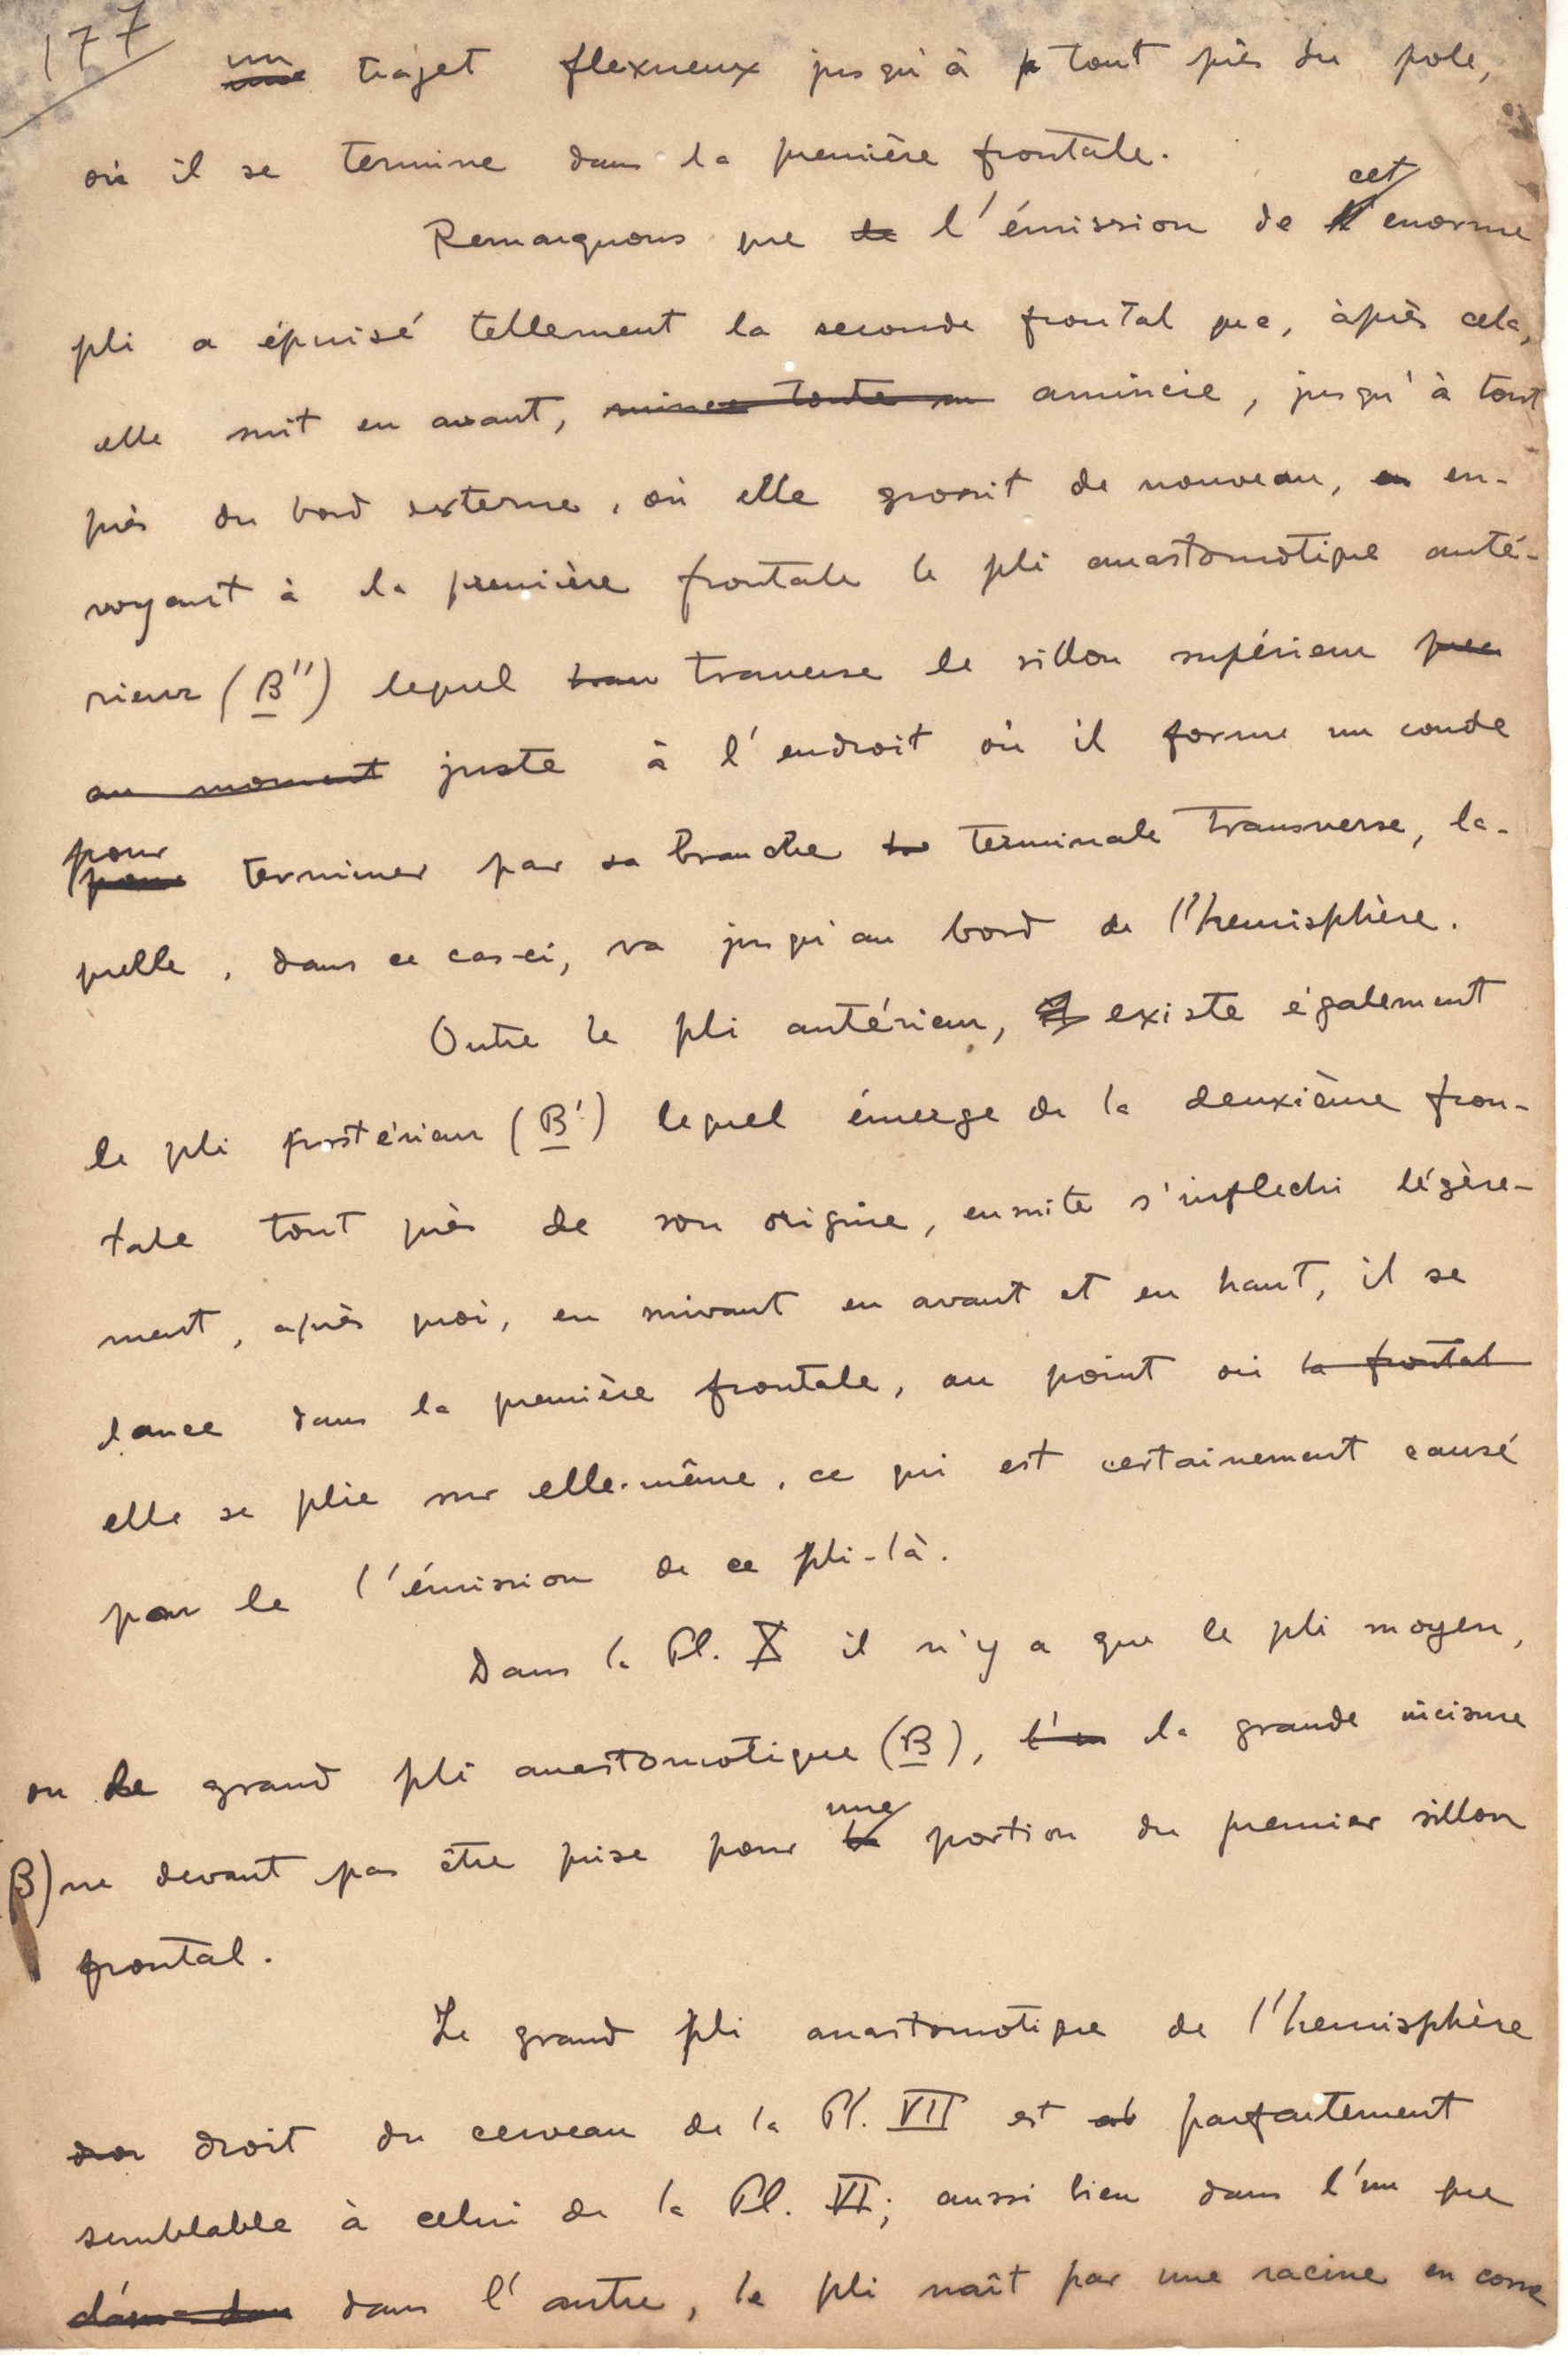 177
un trajet flexueux jusqu'à tout près du pole,
où il se termine dans la première frontale.
Remarquons que l'émission de cet enorme
pli a épuisé tellement la seconde frontal que, àprès cela,
elle suit en avant, amincie, jusqu'à tout
près du bord externe, où elle grossit de nouveau, en-
voyant à la première frontale le pli anastomotique anté-
rieur (B'') lequel traverse le sillon supérieur
au moment juste à l'endroit où il forme un coude
pour terminer par sa branche terminale transverse, la-
quelle, dans ce cas-ci, va jusqu'au bord de l'hemisphère.
Outre le pli antérieur, existe également
le pli postérieur (B') lequel émerge de la deuxième fron-
tale tout près de son origine, ensuite s'inflechi légère-
ment, après quoi, en suivant en avant et en haut, il se
lance dans la première frontale, au point où la frontal
elle se plie sur elle-même, ce qui est certainement causé
par le l'émission de ce pli-là.
Dans la Pl. X il n'y a que le pli moyen,
ou le grand pli anastomotique (B), la grande incisure
B) ne devant pas être prise pour une portion du premier sillon
frontal.
Le grand pli anastomotique de l'hemisphère
droit du cerveau de la Pl. VII est parfaitement
semblable à celui de la Pl. VI; aussi bien dans l'un que
dans l'autre, le pli naît par une racine en corne